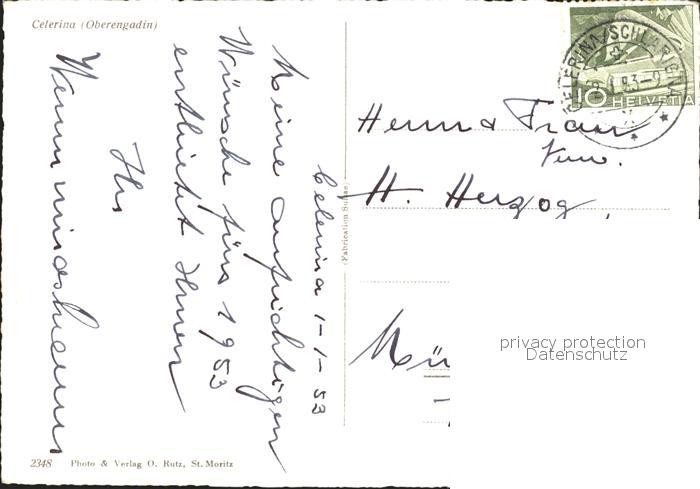 Celerina (Oberengadin)
Celerina 1-1-53
Meine aufrichtigen
Wünsche fürs 1953
entbietet Ihnen
Ihr
CELERINA/SCHLARIGNA
10 HELVETIA
Herrn & Frau
H. Herzog,
Mü
privacy protection
Datenschutz
(Fabrication Suisse)
2348 Photo & Verlag O. Rutz, St. Moritz